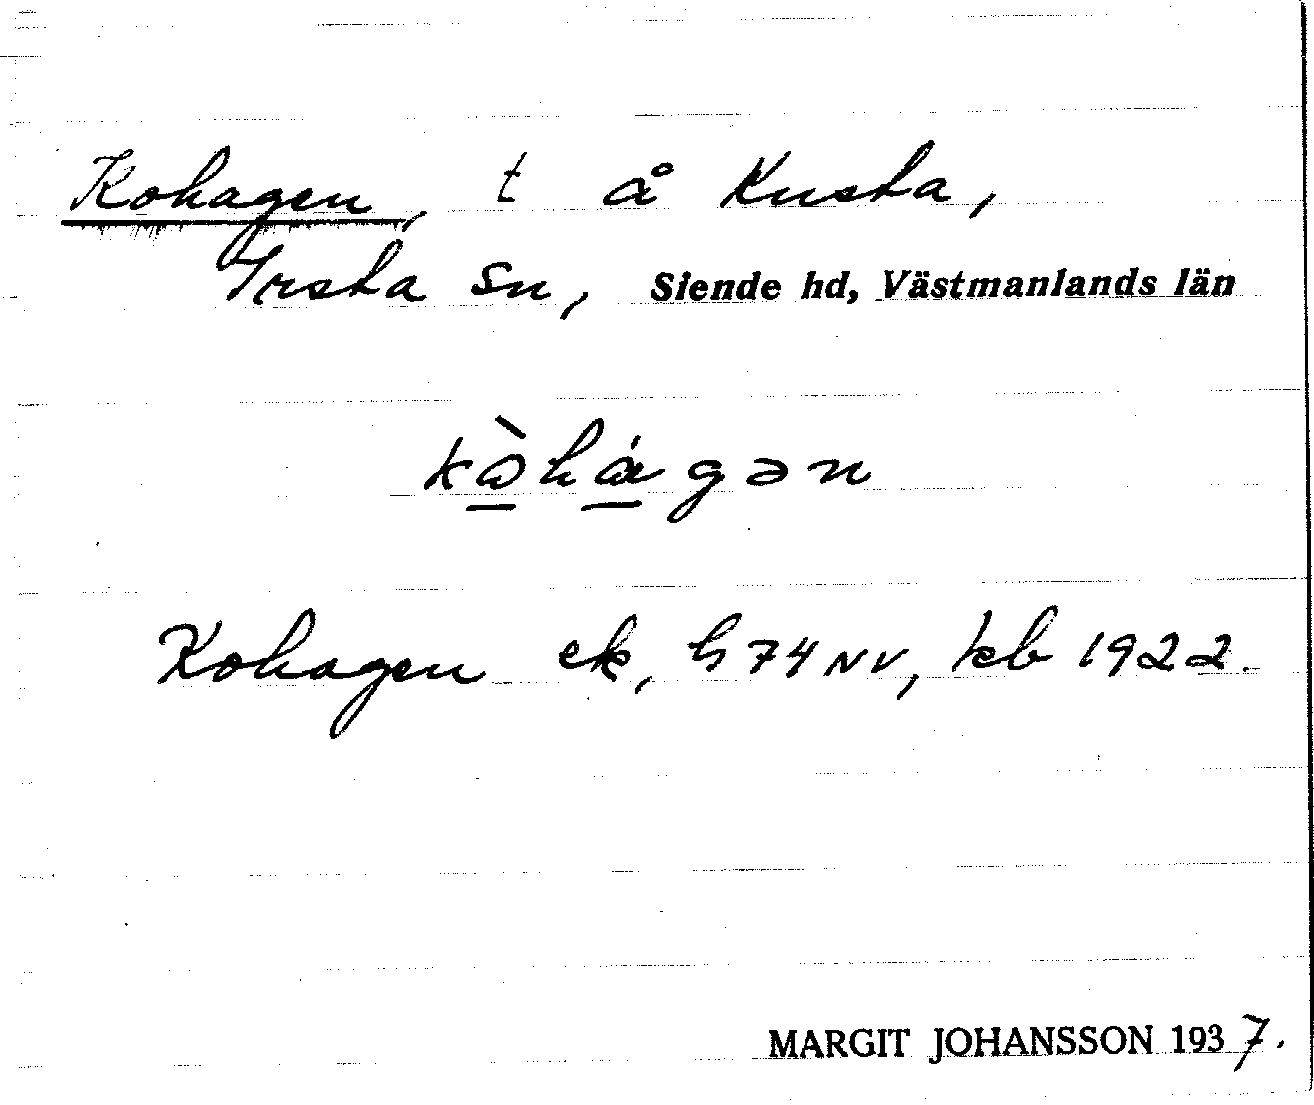 Kohagen, t å Kusta,
Irsta sn, Siende hd, Västmanlands län
kòhágən
Kohagen ek, h 74 NV, kb 1922.
MARGIT JOHANSSON 1937.